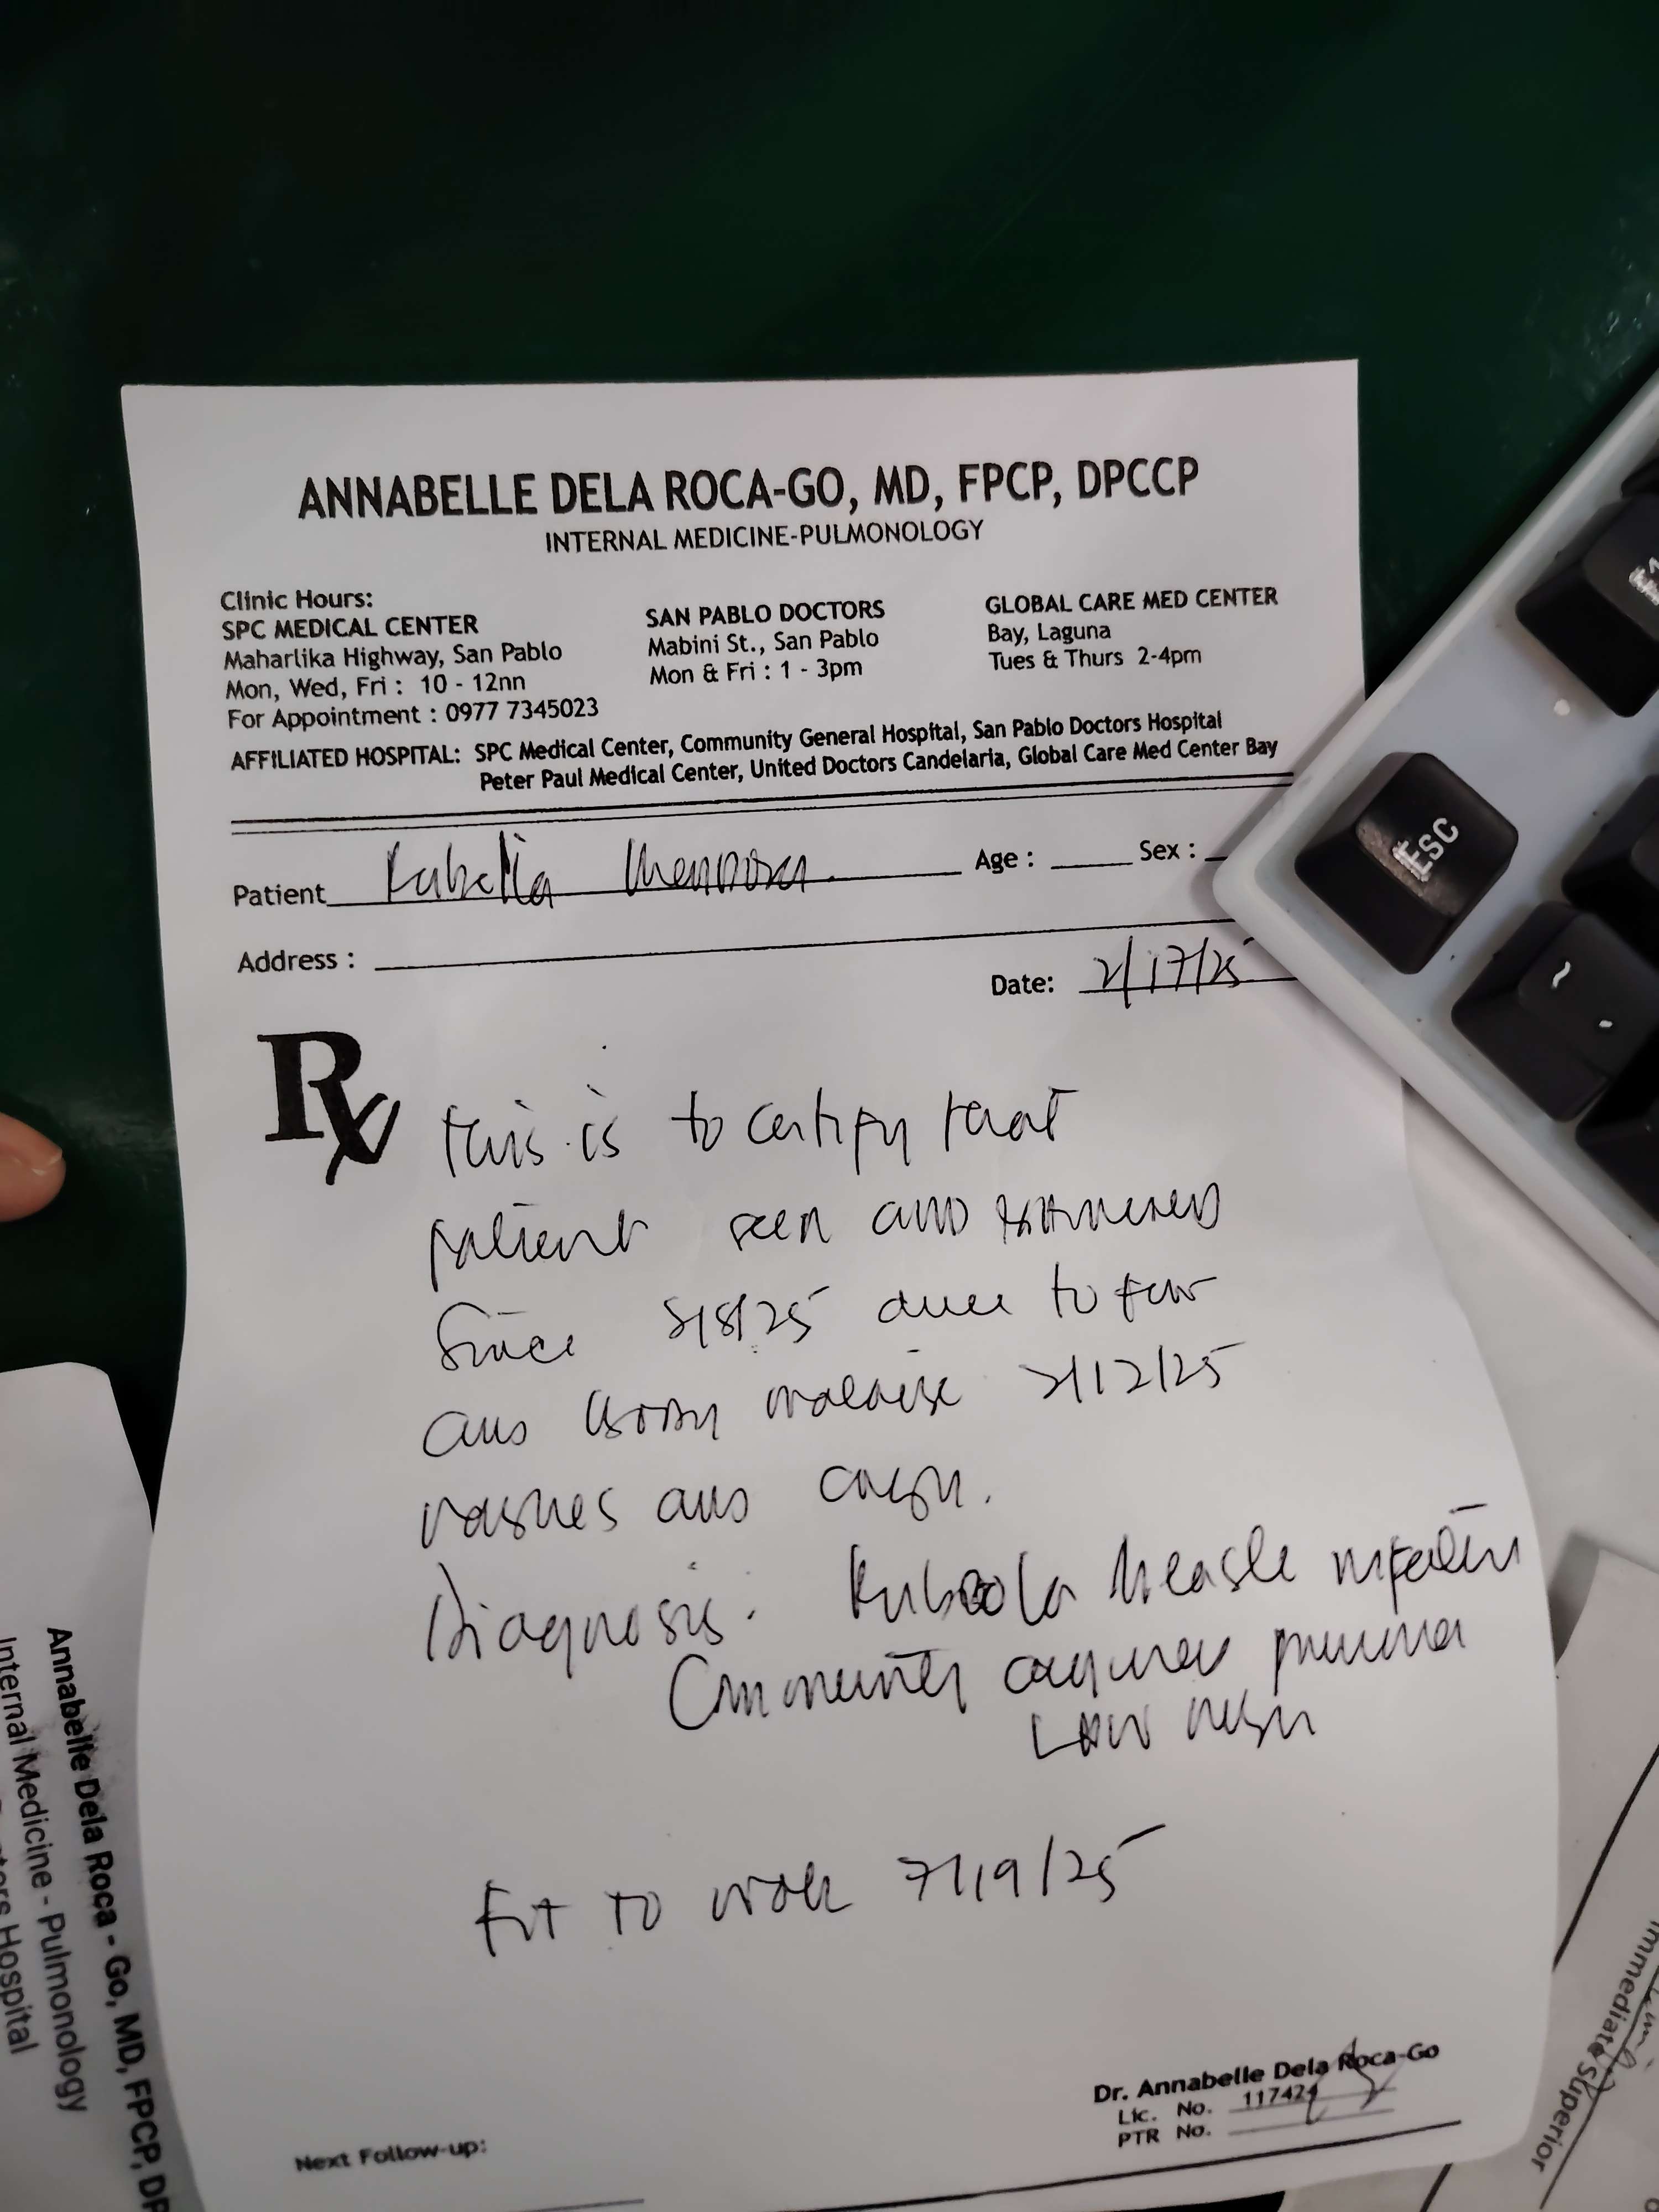 ANNABELLE DELA ROCA-GO, MD, FPCP, DPCCP
INTERNAL MEDICINE-PULMONOLOGY
Clinic Hours:
SPC MEDICAL CENTER
Maharlika Highway, San Pablo
Mon, Wed, Fri : 10 - 12nn
For Appointment : 0977 7345023
SAN PABLO DOCTORS
Mabini St., San Pablo
Mon & Fri : 1 - 3pm
GLOBAL CARE MED CENTER
Bay, Laguna
Tues & Thurs 2-4pm
AFFILIATED HOSPITAL: SPC Medical Center, Community General Hospital, San Pablo Doctors Hospital
Peter Paul Medical Center, United Doctors Candelaria, Global Care Med Center Bay
Patient Age : Sex :
Address :
Date: 2/17/25
Rx
This is to certify that
patient seen and examined
since due to fever
and body malaise 2/12/25
rashes and cough.
Diagnosis: Rubeola Measle infection
Community acquired pneumonia
Low risk
Fit to work
Dr. Annabelle Dela Roca-Go
Lic. No. 117424
PTR No.
Next Follow-up:
Annabelle Dela Roca - Go, MD, FPCP,
Internal Medicine - Pulmonology
Hospital
ESC
~
Superior